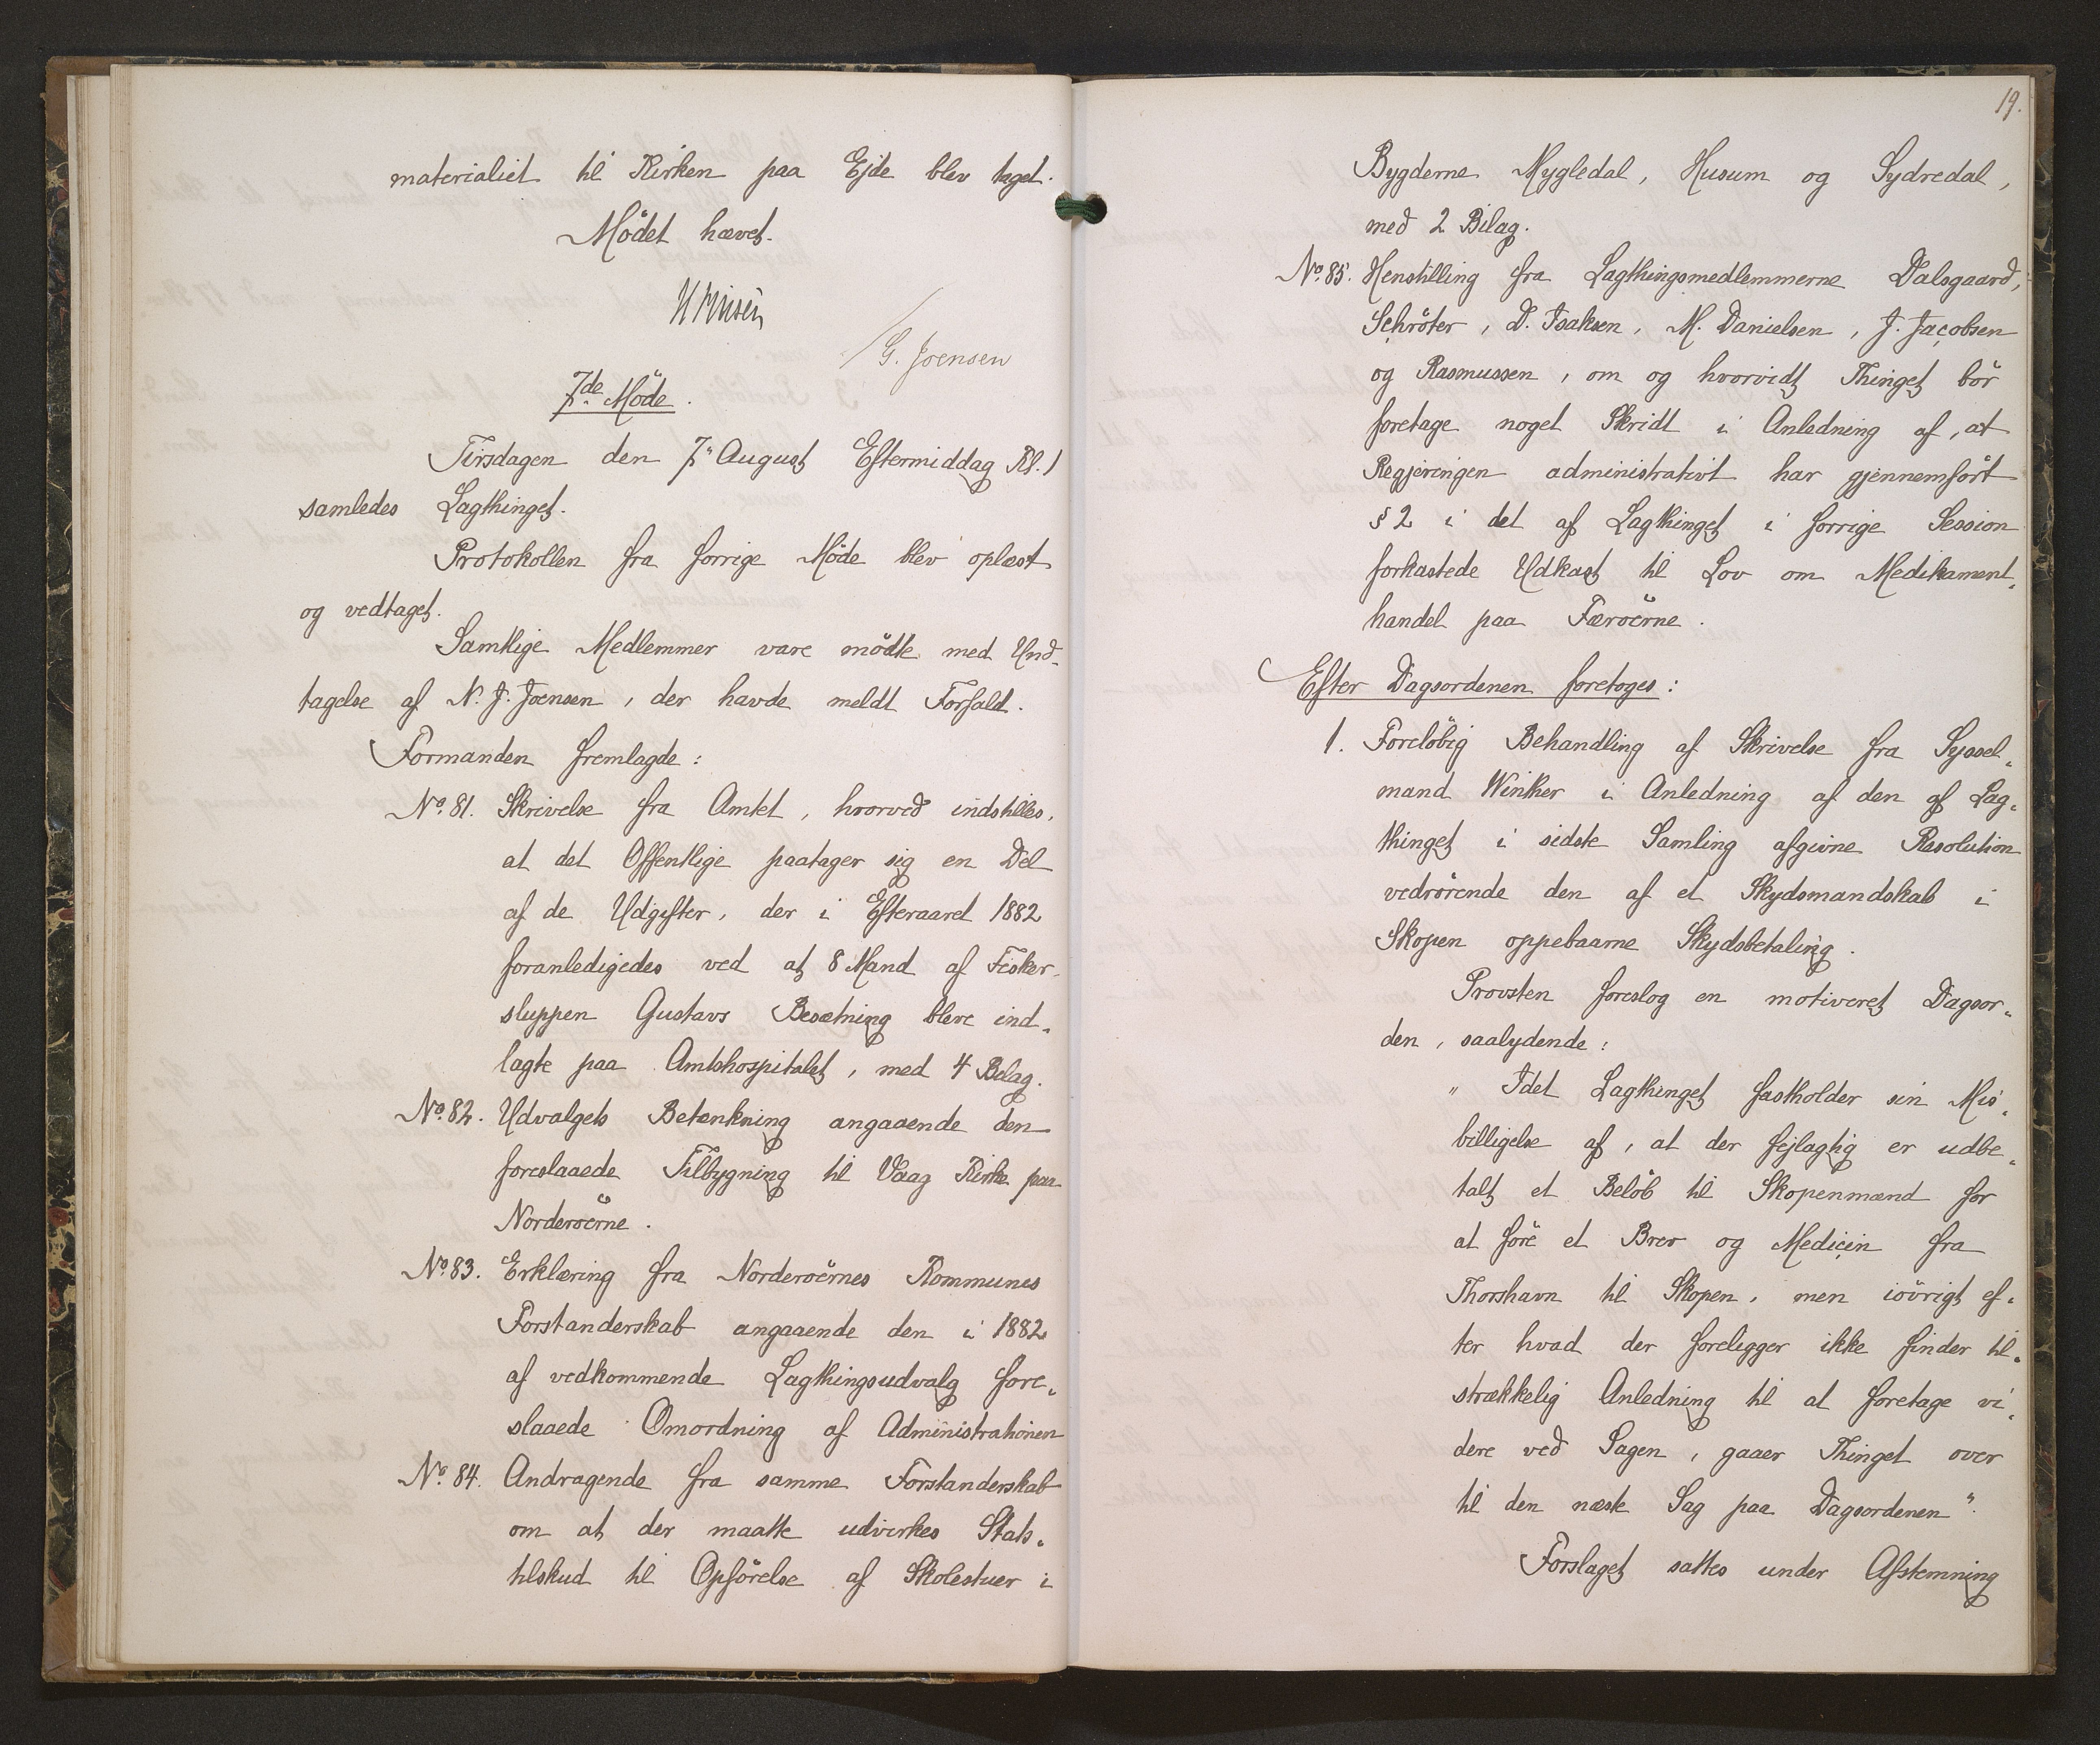 materialiet til Kirken paa Ejde blev taget.
Mödet hævet.
G. Joensen
7de Möde.
Tirsdagen den 7" August Eftermiddag Kl. 1
samledes Lagthinget.
Protokollen fra forrige Möde blev oplæst
og vedtaget.
Samtlige Medlemmer vare mödte med Und-
tagelse af N. J. Joensen, der havde meldt Forfald.
Formanden fremlagde:
No. 81. Skrivelse fra Amtet, hvorved indstilles,
at det Offentlige paatager sig en Del
af de Udgifter, der i Efteraaret 1882
foranledigedes ved at 8 Mand af Fisker-
sluppen Gustavs Besætning bleve ind-
lagte paa Amtshospitalet, med 4 Bilag.
No. 82. Udvalgets Betænkning angaaende den
foreslaaede Tilbygning til Vaag Kirke paa
Norderöerne.
No. 83. Erklæring fra Norderöernes Kommunes
Forstanderskab angaaende den i 1882
af vedkommende Lagthingsudvalg fore-
slaaede Omordning af Administrationen
No. 84. Andragende fra samme Forstanderskab
om at der maatte udvirkes Stats-
tilskud til Opförelse af Skolestuer i
19.
Bygderne Mygledal, Husum og Sydredal,
med 2 Bilag.
No. 85. Henstilling fra Lagthingsmedlemmerne Dalsgaard,
Schröter, D. Isaksen, M. Danielsen, J. Jacobsen
og Rasmussen, om og hvorvidt Thinget bör
foretage noget Skridt i Anledning af, at
Regjeringen administrativt har gjennemfört
§ 2 i det af Lagthinget i forrige Session
forkastede Udkast til Lov om Medikament-
handel paa Færöerne.
Efter Dagsordenen foretoges:
1. Forelöbig Behandling af Skrivelse fra Syssel-
mand Winther i Anledning af den af Lag-
thinget i sidste Samling afgivne Resolution
vedrörende den af et Skydsmandskab i
Skopen oppebaarne Skydsbetaling.
Provsten foreslog en motiveret Dagsor-
den, saalydende:
" Idet Lagthinget fastholder sin Mis-
billigelse af, at der fejlagtig er udbe-
talt et Belöb til Skopenmænd for
at före et Brev og Medicin fra
Thorshavn til Skopen, men iövrigt ef-
ter hvad der foreligger ikke finder til-
strækkelig Anledning til at foretage vi-
dere ved Sagen, gaaer Thinget over
til den næste Sag paa Dagsordenen".
Forslaget sattes under Afstemning